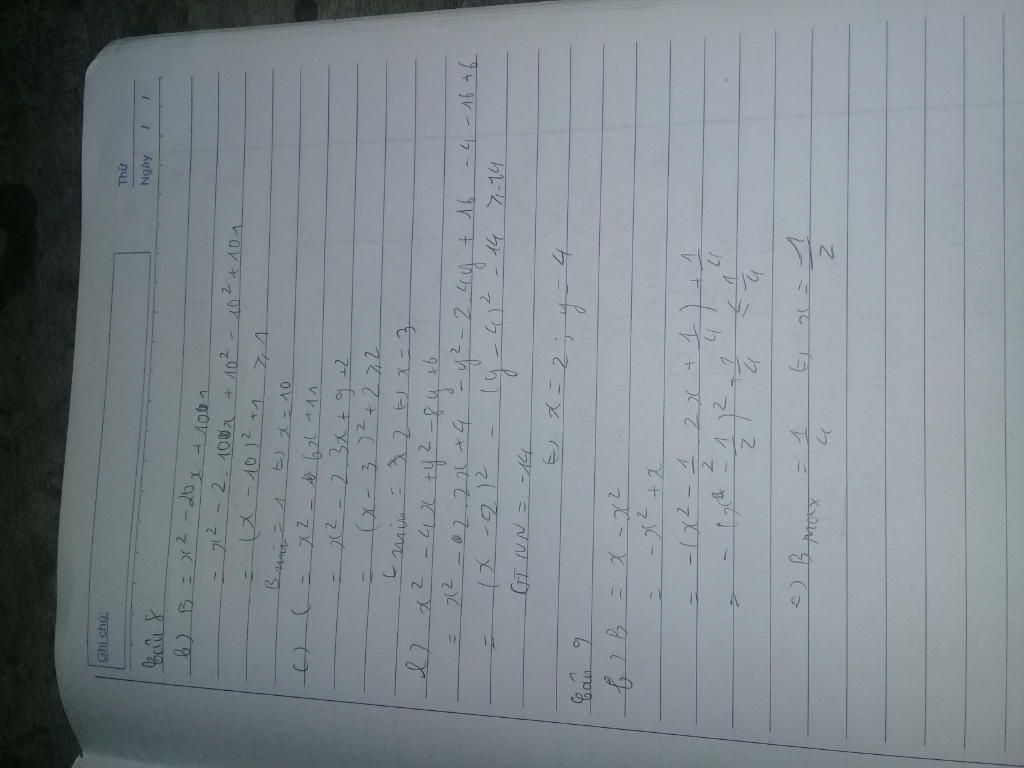 Ghi chú:
Thứ
Ngày / /
Câu 8
b) B = x² - 20x + 101
= x² - 2.10x + 10² - 10² + 101
= (x - 10)² + 1 ⩾ 1
Bmin = 1 (=) x = 10
c) C = x² - 6x + 11
= x² - 2.3x + 9 + 2
= (x - 3)² + 2 ⩾ 2
Cmin = 2 (=) x = 3
d) x² - 4x + y² - 8y + 6
= x² - 2.2x + 4 - y² - 2.4y + 16 - 4 - 16 + 6
= (x - 2)² - (y - 4)² - 14 ⩾ -14
GTNN = -14
(=) x = 2 ; y = 4
Câu 9
b) B = x - x²
= -x² + x
= -(x² - 1/2 . 2x + 1/4) + 1/4
= -(x - 1/2)² + 1/4 ≤ 1/4
=) Bmax = 1/4 (=) x = 1/2